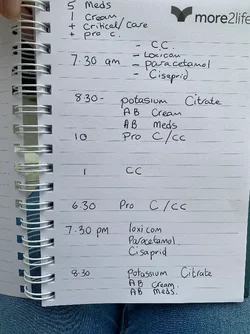 5 Meds
1 Cream
+ Critical/care
+ pro c.
more2life
- CC
- Loxicom
7.30 am - paracetamol
- Cisaprid
8.30 - potasium Citrate
AB Cream
AB Meds
10 Pro C/CC
1 CC
6.30 Pro C/CC
7.30 pm loxicom
Paracetamol
Cisaprid
8.30 Potassium Citrate
AB Cream
AB Meds.